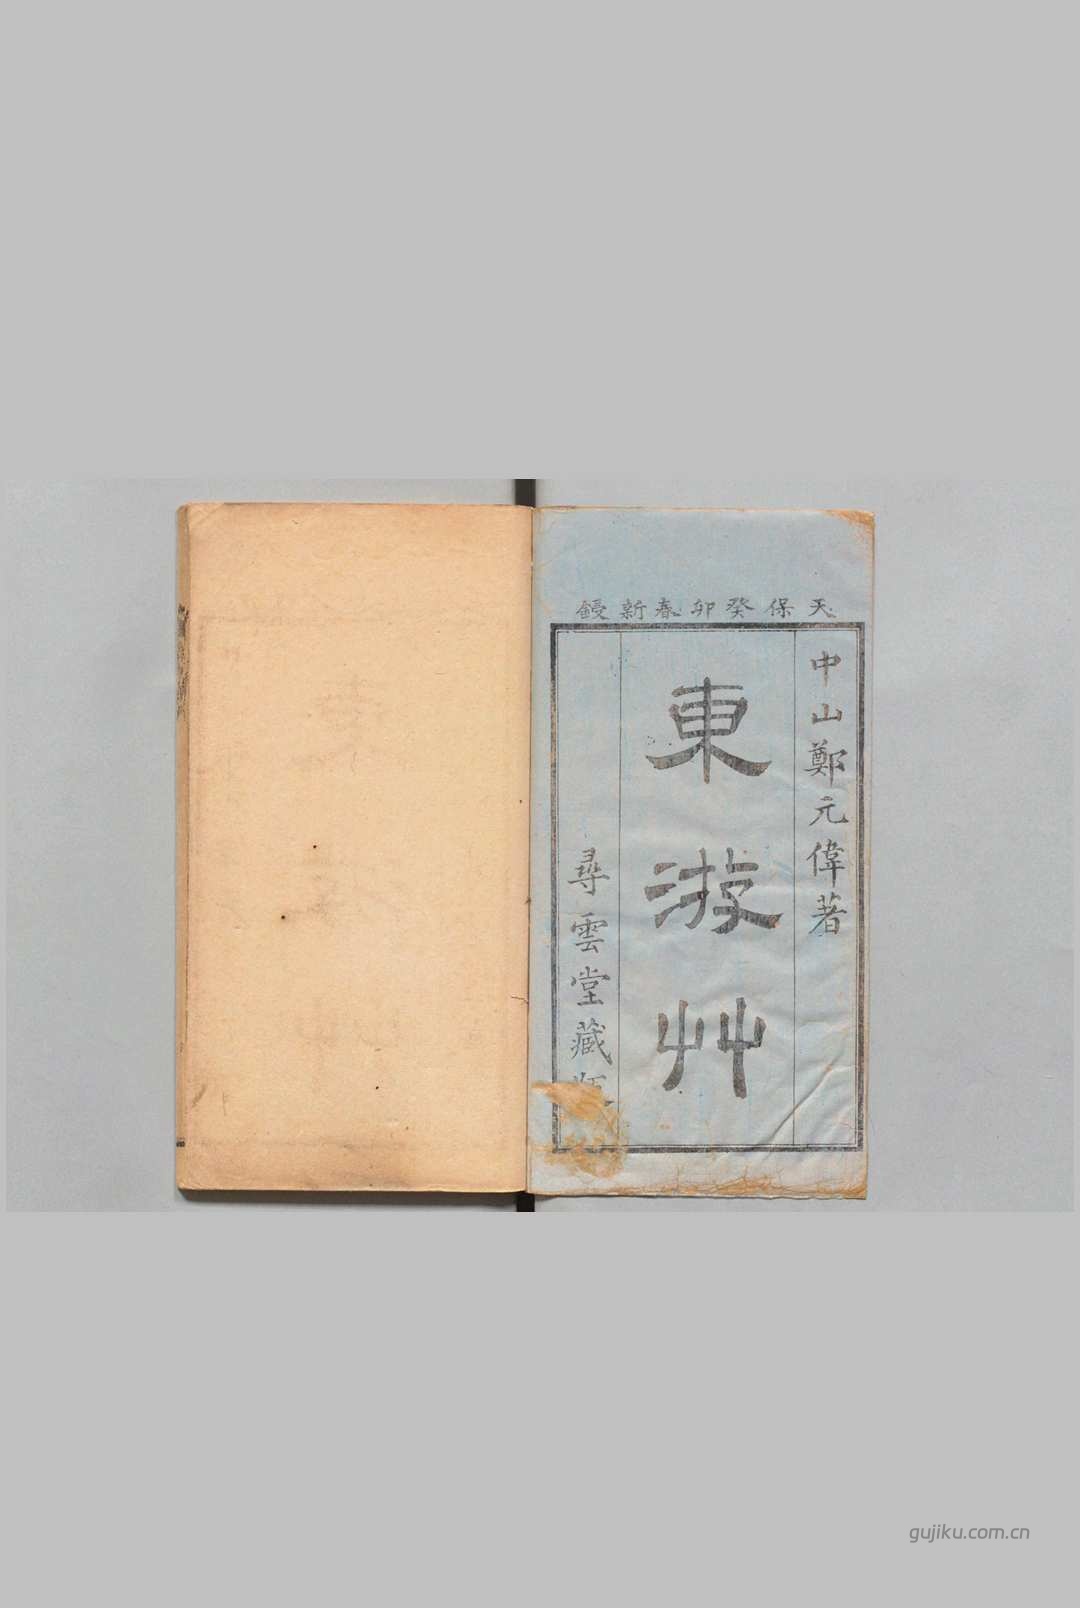 天保癸卯春新鋟
中山鄭元偉著
東游艸
尋雲堂藏
gujiku.com.cn